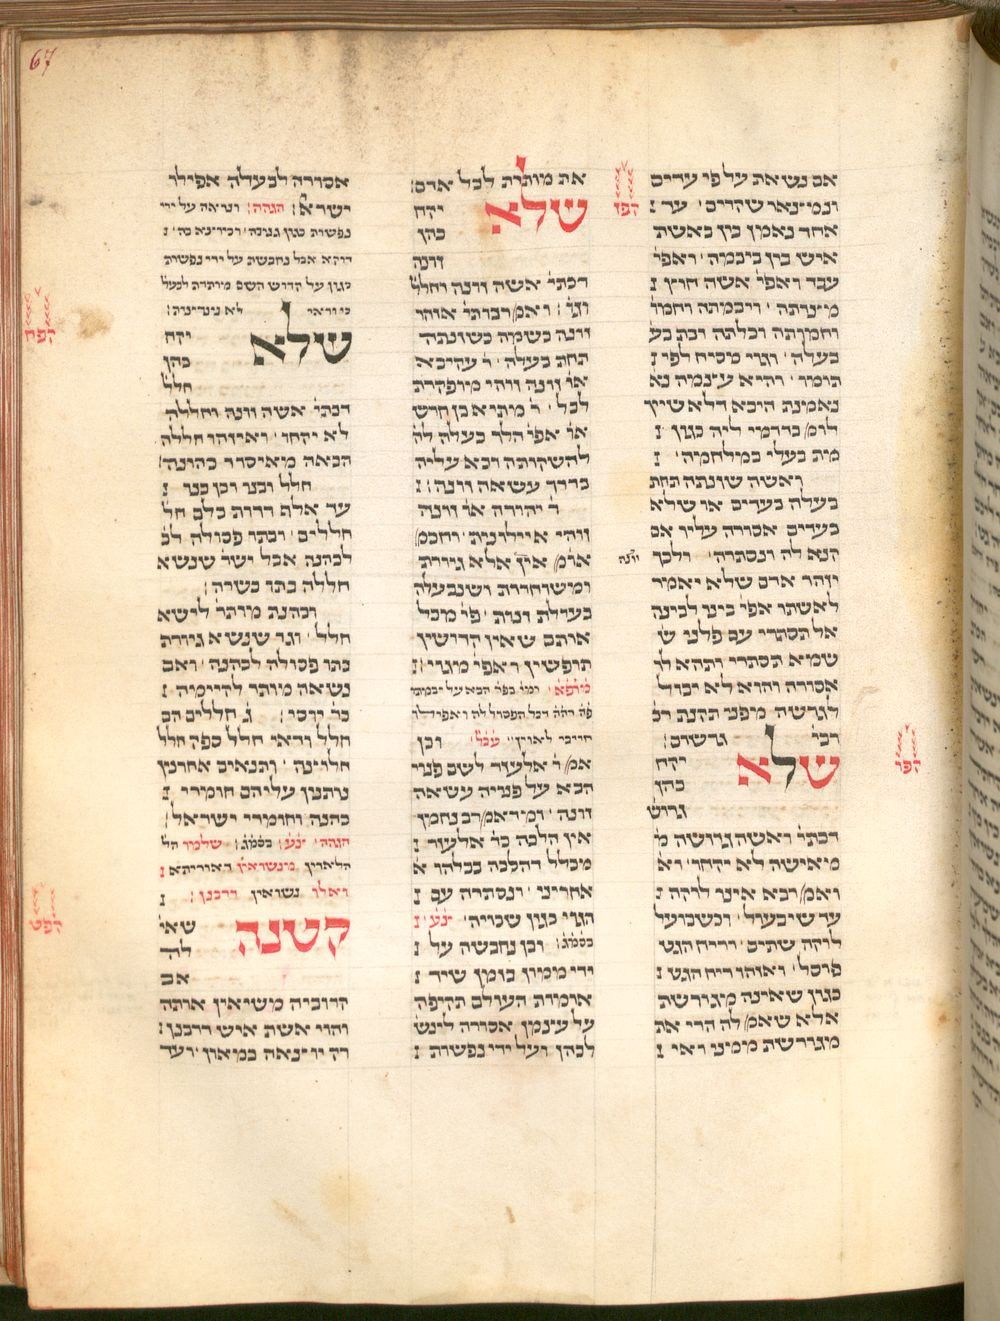 67
אם נשאת על פי עדים
ונמצאו שקרים׳ עד
אחד נאמן בין באשת
איש בין ביבמה׳ ואפי׳
עבד ואפי׳ אשה חוץ
מצרתה׳ ויבמתה וחמו׳
וחמותה וכלתה ובת בע
בעלה׳ וגוי מסיח לפי
תומו׳ והיא עצמה נא
נאמנת היכא דלא שייך
לומ׳ בדדמי ליה כגון
מת בעלי במלחמה׳
ואשה שזנתה תחת
בעלה בעדים או שלא
בעדים אסורה עליו אם
קנא לה ונסתרה׳ ולכך
יזהר אדם שלא יאמר
לאשתו אפי׳ בינו לבינה
אל תסתרי עם פלוני ש
שמא תסתרי ותהא לו
אסורה והוא לא יכול
לגרשה מפני תקנת ר
רבי׳ גרשום׳
שלא
יקח
כהן
גרוש
דכתי׳ ואשה גרושה מ
מאישה לא יקחו׳ וא
ואמ׳ רבא אינו לוקה
עד שיבעול׳ וכשבועל
לוקה שתים׳ וריח הגט
פוסל׳ ואיזהו ריח הגט
כגון שאינה מגורשת
אלא שאמ׳ לה הרי את
מגורשת ממני ואי
הפו
זונה
הפז
את מותרת לכל אדם׳
שלא
יקח
כהן
זונה
דכתי׳ אשה זונה וחלל׳
וגו׳׃ ואמ׳ רבותי׳ איזהי
זונה כשמה כשזנתה
תחת בעלה׳ ר׳ עקיבא
או׳ זונה זוהי מופקרת
לכל׳ ר׳ מתיא בן חרש
או׳ אפי׳ הלך בעלה לה
להשקותה ובא עליה
בדרך עשאה זונה׃
ר׳ יהודה או׳ זונה
זוהי איילונית׳ וחכמ׳
אומ׳ אין אלא גיורת
ומשוחררת ושנבעלה
בעילת זנות׳ פי׳ מכל
אותם שאין קדושין
תופשין ואפי׳ מגוי׃
אמ׳ ר׳ אלעזר לשם פנוי
הבא על פנויה עשאה
זונה׳ ומ׳ ר׳ אמ׳ רב נחמן
אין הלכה כר׳ אלעזר
מכלל דהלכה ככלהו א
אחריני׳ ונסתרה עם
הגוי כגון שבויה׳
וכן נחבשה על
ידי ממון בזמן שיד
אומות העולם תקיפה
על עצמן אסורה לינש
לכהן ועל ידי נפשות
אסורה לבעלה אפילו
ישרא׳׃ הגהה׃ ונראה על ידי
נפשות כגון גנובה׳
דוקא אבל נחבשת על ידי נפשות
כגון על קדוש השם מותרת לבעל
שלא
יקח
כהן
חלל׳
דכתי׳ אשה זונה וחללה
לא יקחו׳ ואיזהו חללה
הבאה מאיסורי כהונה׳
חלל ובנו ובן בנו
עד אלף דורות כלם חל
חללים׳ ובתו פסולה לכ
לכהנה אבל ישר׳ שנשא
חללה בתו כשירה׃
וכהנת מותר׳ לישא
חלל׳ וגר שנשא גיורת
בתו פסולה לכהנה׳ ואם
נשאה מותר לקיימה
כר׳ יוסי׃ ג׳ חללים הם
חלל ודאי חלל ספק חלל
חלוצה׳ ותנאים אחרונין
נותנין עליהם חומרי
כהנה וחומרי ישראל׃
קטנה
שאי
לה
אב
הרוצה משיאין אותה
והוי אשת איש דרבנן
יוצאה במאון׳ ועד
הפח
הפט